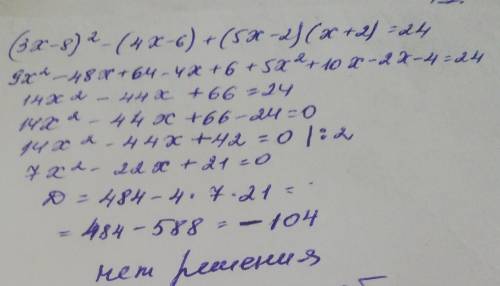 (3x-8)² - (4x-6) + (5x-2)(x+2) = 24
9x² - 48x + 64 - 4x + 6 + 5x² + 10x - 2x - 4 = 24
14x² - 44x + 66 = 24
14x² - 44x + 66 - 24 = 0
14x² - 44x + 42 = 0 |:2
7x² - 22x + 21 = 0
D = 484 - 4 · 7 · 21 =
= 484 - 588 = -104
нет решения